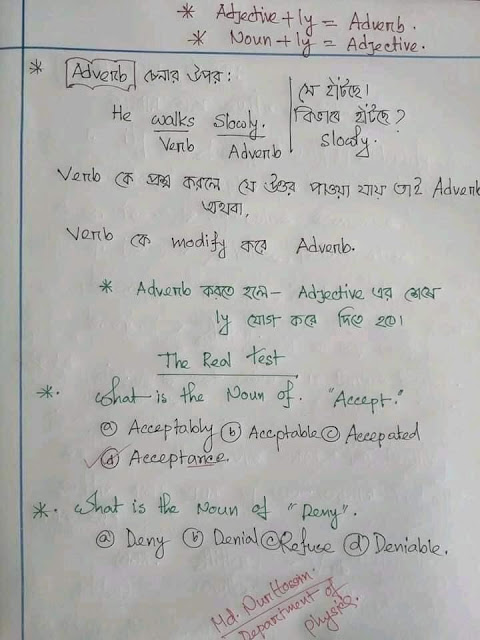 * Adjective + ly = Adverb.
* Noun + ly = Adjective.
* Adverb চেনার উপায়:
He walks slowly.
Verb Adverb
সে হাঁটছে।
কিভাবে হাঁটছে?
slowly.
Verb কে প্রশ্ন করলে যে উত্তর পাওয়া যায় তাই Adverb
অথবা,
Verb কে modify করে Adverb.
* Adverb করতে হলে- Adjective এর শেষে
ly যোগ করে দিতে হবে।
The Real test
*. What is the Noun of. "Accept."
ⓐ Acceptably ⓑ Accptable ⓒ Accepated
ⓓ Acceptance.
*. What is the Noun of "Deny".
ⓐ Deny ⓑ Denial ⓒ Refuse ⓓ Deniable.
Md. Nur Hossain.
Department of
Physics.